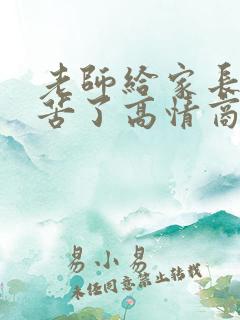 老師給家長
苦了高情商
易小易
未經同意禁止轉載